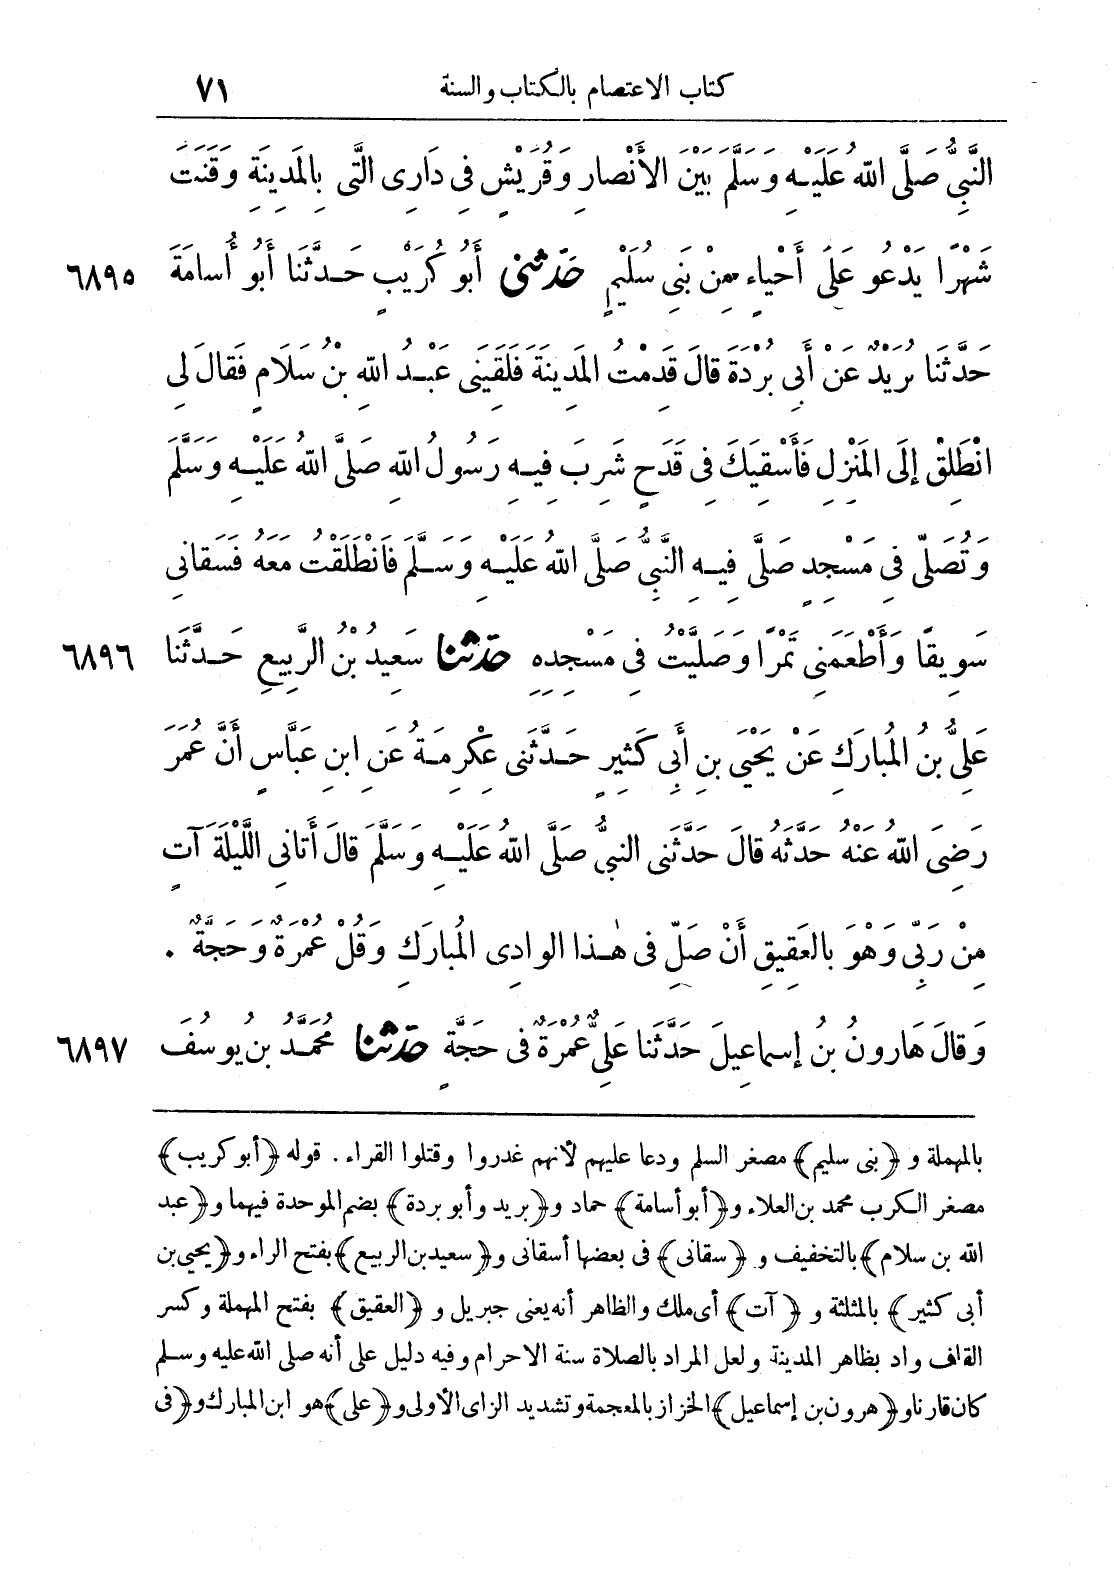 كتاب الاعتصام بالكتاب والسنة ٧١
النَّبِيُّ صَلَّى اللهُ عَلَيْهِ وَسَلَّمَ بَيْنَ الأَنْصَارِ وَقُرَيْشٍ فِى دَارِى الَّتِى بِالمَدِينَةِ وَقَنَتَ
شَهْرًا يَدْعُو عَلَى أَحْيَاءٍ مِنْ بَنِى سُلَيْمٍ حَدَّثَنِى أَبُو كُرَيْبٍ حَدَّثَنَا أَبُو أُسَامَةَ ٦٨٩٥
حَدَّثَنَا بُرَيْدٌ عَنْ أَبِى بُرْدَةَ قَالَ قَدِمْتُ المَدِينَةَ فَلَقِيَنِى عَبْدُ اللهِ بْنُ سَلَامٍ فَقَالَ لِى
انْطَلِقْ إِلَى المَنْزِلِ فَأَسْقِيَكَ فِى قَدَحٍ شَرِبَ فِيهِ رَسُولُ اللهِ صَلَّى اللهُ عَلَيْهِ وَسَلَّمَ
وَتُصَلِّى فِى مَسْجِدٍ صَلَّى فِيهِ النَّبِيُّ صَلَّى اللهُ عَلَيْهِ وَسَلَّمَ فَانْطَلَقْتُ مَعَهُ فَسَقَانِى
سَوِيقًا وَأَطْعَمَنِى تَمْرًا وَصَلَّيْتُ فِى مَسْجِدِهِ حَدَّثَنَا سَعِيدُ بْنُ الرَّبِيعِ حَدَّثَنَا ٦٨٩٦
عَلِىُّ بْنُ المُبَارَكِ عَنْ يَحْيَى بنِ أَبِى كَثِيرٍ حَدَّثَنِى عِكْرِمَةُ عَنِ ابنِ عَبَّاسٍ أَنَّ عُمَرَ
رَضِىَ اللهُ عَنْهُ حَدَّثَهُ قَالَ حَدَّثَنِى النبىُّ صَلَّى اللهُ عَلَيْهِ وَسَلَّمَ قَالَ أَتَانِى اللَّيْلَةَ آتٍ
مِنْ رَبِّى وَهْوَ بِالعَقِيقِ أَنْ صَلِّ فِى هٰذَا الوَادِى المُبَارَكِ وَقُلْ عُمْرَةٌ وَحَجَّةٌ .
وَقَالَ هَارُونُ بنُ إسماعِيلَ حَدَّثَنَا عَلِىٌّ عُمْرَةٌ فِى حَجَّةٍ حَدَّثَنَا مُحَمَّدُ بن يُوسُفَ ٦٨٩٧
بالمهملة و ﴿بنى سليم﴾ مصغر السلم ودعا عليهم لأنهم غدروا وقتلوا القراء . قوله ﴿أبو كريب﴾
مصغر الكرب محمد بن العلاء و﴿أبو أسامة﴾ حماد و﴿بريد وأبو بردة﴾ بضم الموحدة فيهما و﴿عبد
الله بن سلام﴾ بالتخفيف و ﴿سقانى﴾ فى بعضها أسقانى و﴿سعيد بن الربيع﴾ بفتح الراء و﴿يحيى بن
أبى كثير﴾ بالمثلثة و ﴿آت﴾ أى ملك والظاهر أنه يعنى جبريل و ﴿العقيق﴾ بفتح المهملة وكسر
القاف واد بظاهر المدينة ولعل المراد بالصلاة سنة الاحرام وفيه دليل على أنه صلى الله عليه وسلم
كان قارنا و﴿هرون بن إسماعيل﴾ الخزاز بالمعجمة وتشديد الزاى الأولى و﴿على﴾ هو ابن المبارك و﴿فى